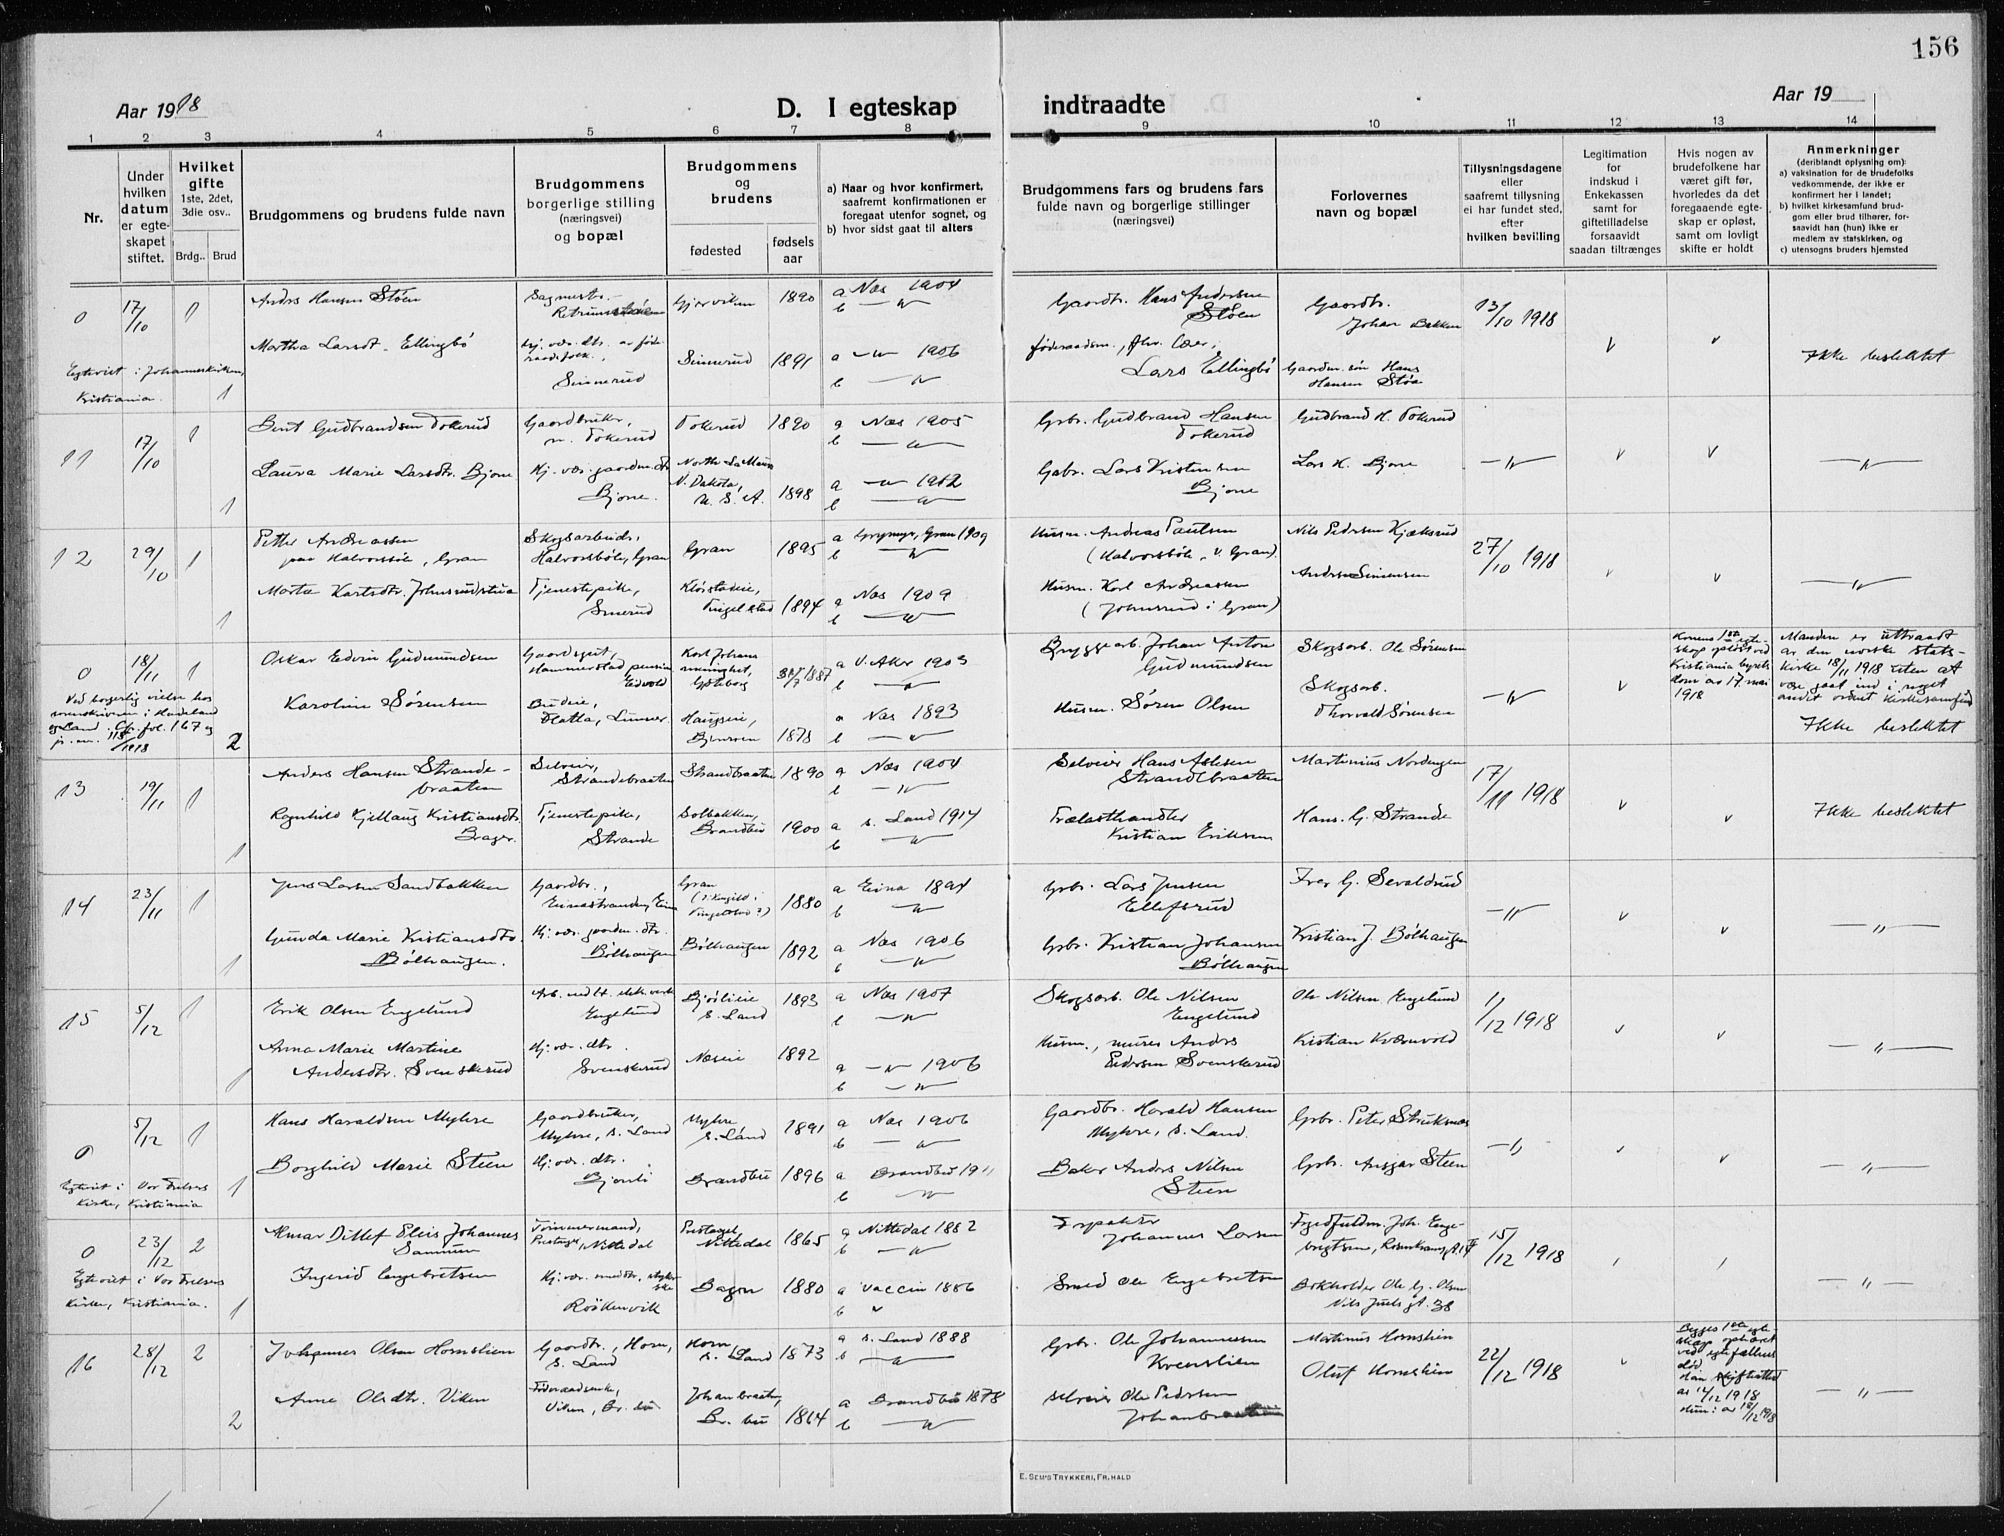 156
Aar 1918
D. I egteskap
indtraadte
Aar 19
1 2 3 4 5 6 7 8 9 10 11 12 13 14
Nr.
Under hvilken datum er egteskapet stiftet.
Hvilket gifte
1ste, 2det, 3die osv..
Brdg.. Brud
Brudgommens og brudens fulde navn
Brudgommens borgerlige stilling
(næringsvei)
og bopæl
Brudgommens og brudens
fødested
fødsels aar
a) Naar og hvor konfirmert, saafremt konfirmationen er foregaat utenfor sognet, og
b) hvor sidst gaat til alters
Brudgommens fars og brudens fars
fulde navn og borgerlige stillinger
(næringsvei)
Forlovernes
navn og bopæl
Tillysningsdagene
eller
saafremt tillysning
ei har fundet sted,
efter
hvilken bevilling
Legitimation
for
indskud i
Enkekassen
samt for
giftetilladelse
forsaavidt
saadan tiltrænges
Hvis nogen av
brudefolkene har
været gift før,
hvorledes da det
foregaaende egte-
skap er opløst,
samt om lovligt
skifte er holdt
Anmerkninger
(deriblandt oplysning om):
a) vaksination for de brudefolks vedkommende, der ikke er konfirmert her i landet;
b) hvilket kirkesamfund brudgom eller brud tilhører, forsaavidt han (hun) ikke er medlem av statskirken, og
c) utensogns bruders hjemsted
0 17/10 1 Hansen Støen Gjørviken 1890 a Næs 1904 b —"— Gaardbr. Hans Andersen Støen Gaardbr. Johan Bakken 13/10 1918
Martha Larsdt. Ellingbø Sinnerud 1891 a —"— 1906 b —"— Lars Ellingbø Gaardm. søn Hans Hansen Støa Ikke beslektet
Egteviet i Johanneskirken, Kristiania. 1
11 17/10 1 Bent Gudbrandsen Tokerud Gaardbruker, n. Tokerud Tokerud 1890 a Næs 1905 b —"— Grbr. Gudbrand Hansen Tokerud Gudbrand H. Tokerud —"—
Laura Marie Larsdtr. Bjone Hj. vær. gaardm. dtr. Bjone. N. Dakota, U. S. A. 1898 a —"— 1912 b —"— Gabr. Lars Kristensen Bjone Lars K. Bjone —"—
1
12 29/10 1 Petter Andreassen paa Halvorsbøle, Gran Skogsarbeider, Halvorsbøle, Gran Gran 1895 a Grymyr, Gran 1909 b —"— Husm. Andreas Paulsen (Halvorsbøle, v. Gran) Nils Pedersen Kjæksrud 27/10 1918
Marta Karlsdtr. Johnsrudstua Tjenestepike, Tingelstad 1894 a Næs 1909 b —"— Husm. Karl Andreassen (Johnsrud i Gran) Anders Simensen —"—
1
0 18/11 1 Oskar Edvin Gudmundsen Gaardsgut, Hammerstad pension Eidvold Karl Johans menighet, Gøteborg 1887 a V. Aker 1903 b —"— Bryggearb. Johan Anton Gudmundsen Skogsarb. Ole Sørensen
Konens 1ste egteskap opløst ved Kristiania byrets dom av 17 mai 1918
Manden er uttraadt av den norske statskirke 18/11 1918 uten at være gaat ind i noget andet ordnet kirkesamfund
Karoline Sørensen Budeie, Flatla, Lunner 1878 a Næs 1893 b —"— Husm. Søren Olsen Skogsarb. Thorvald Sørensen —"—
Ikke beslektet
Ved borgerlig vielse hos sorenskriveren i Hadeland og Land. Cfr. fol. 167 og
2
13 19/11 1 Anders Hansen Strandebraaten Selveier, Strandebraaten Strandbraaten 1890 a Næs 1904 b —"— Selveier Hans Aslesen Strandebraaten Martinius Nordengen 17/11 1918
Ragnhild Gjellaug Kristiansdtr. Brager. Tjenestepike, Strande Solbakken, Brandbu 1900 a s. Land 1914 b —"— Trælasthandler Kristian Eriksen Hans G. Strande Ikke beslektet
1
14 23/11 1 Jens Larsen Sandbakken Gaardbr., Einastranden, Eina Gran 1880 a Eina 1894 b —"— Grbr. Lars Jensen Ellefsrud Iver G. Sevaldrud —"—
Gunda Marie Kristiansdtr. Bølhaugen. Hj. vær. gaardm. dtr. Bølhaugen Bølhaugen 1892 a Næs 1906 b —"— Grbr. Kristian Johansen Bølhaugen Kristian J. Bølhaugen —"—
1
15 5/12 1 Erik Olsen Engelund Engelund s. Land 1893 a Næs 1907 b —"— Skogsarb. Ole Nilsen Engelund Ole Nilsen Engelund 1/12 1918
Anna Marie Martine Andersdtr. Svenskerud Hj. vær. dtr. Svenskerud Næseie 1892 a —"— 1906 b —"— Husm., murer Anders Pedersen Svenskerud Kristian Kværnvold —"—
1
0 5/12 1 Hans Haraldsen Myhre Gaardbruker, Myhre, s. Land Myhre s. Land 1891 a Næs 1906 b —"— Gaardbr. Harald Hansen Myhre, s. Land. Grbr. Peter Struksnæs —"—
Borghild Marie Steen Hj. vær. dtr. Brandbu 1896 a Brandbu 1911 b —"— Baker Anders Nilsen Steen Grbr. Ansgar Steen —"—
Egteviet i Vor Frelsers kirke, Kristiania 1
0 23/12 2 Ditlef Johannes Tømmermand, Nittedal Nittedal 1865 a Nittedal 1882 b —"— Johannes Larsen 15/12 1918
Ingerid Engebretsen Røikenvik Bagn 1880 a Vaccin 1886 b " Smed Ole Engebretsen Bokholder Ole G. Olsen Nils Juels gt. 38 —"—
Egteviet i Vor Frelsers kirke, Kristiania. 1
16 28/12 2 Johannes Olsen Hornslien Gaardbr., Horn, s. Land Horn, s. Land 1873 a s. Land 1888 b —"— Grbr. Ole Johannessen Martinus Hornslien 22/12 1918
Begges 1ste egteskap ophævet ved egtefællens død
Anne Olsdtr. Viken Viken, Br. bu Johanbraaten, Br. bu 1864 a Brandbu 1878 b —"— Selveier Ole Pedersen Oluf Hornslien —"—
2
E. SEM'S TRYKKERI, FR.HALD